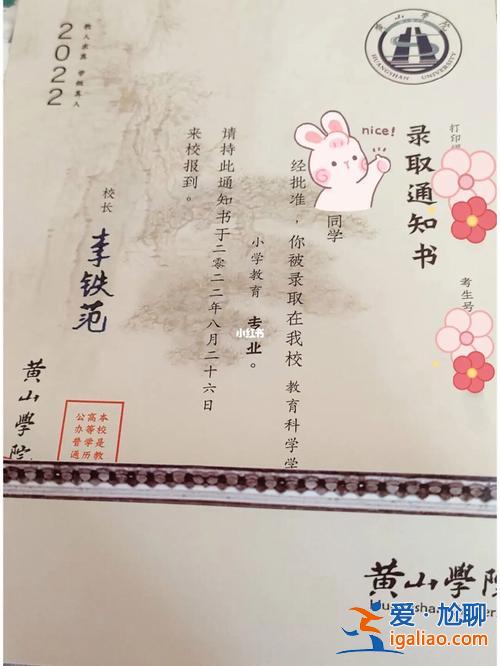 黄山學院
HUANGSHAN UNIVERSITY
打印
考生号
录取通知书
nice!
同学
经批准，你被录取在我校 教育科学学
小学教育 专业。
请持此通知书于二〇二二年八月二十六日
来校报到。
校长 李铁范
黄山學院
教人求真 学做真人
2022
本校是教
高等学历
公办普通
小红书
黄山學院
爱·尬聊
igaliao.com